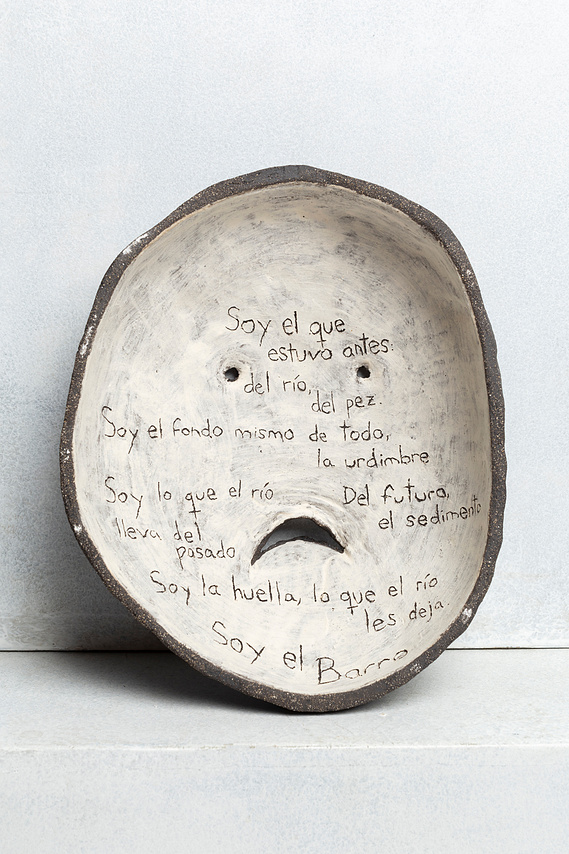 Soy el que
estuvo antes:
del río,
del pez.
Soy el fondo mismo de todo,
la urdimbre
Soy lo que el río
lleva del
pasado
Del futuro,
el sedimento
Soy la huella, lo que el río
les deja.
Soy el Barro